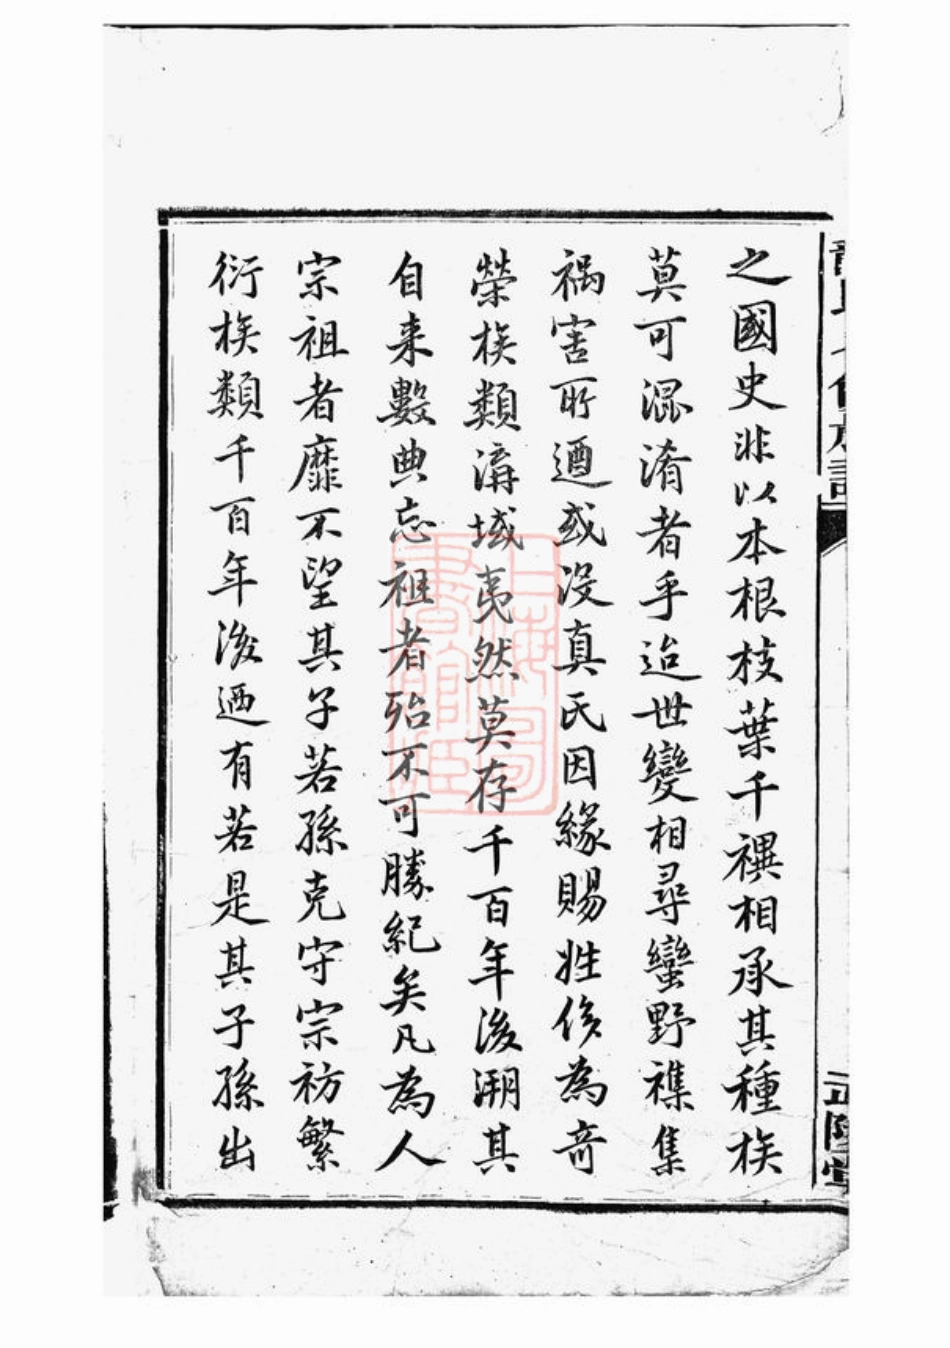 之國史非以本根枝葉千禩相承其種族
莫可混淆者乎迨世變相尋蠻野襍集
禍害所遭或没真氏因緣賜姓侈為奇
榮族類溝域夷然莫存千百年後溯其
自来數典忘祖者殆不可勝紀矣凡為人
宗祖者靡不望其子若孫克守宗祊繁
衍族類千百年後迺有若是其子孫出
上海圖書館藏